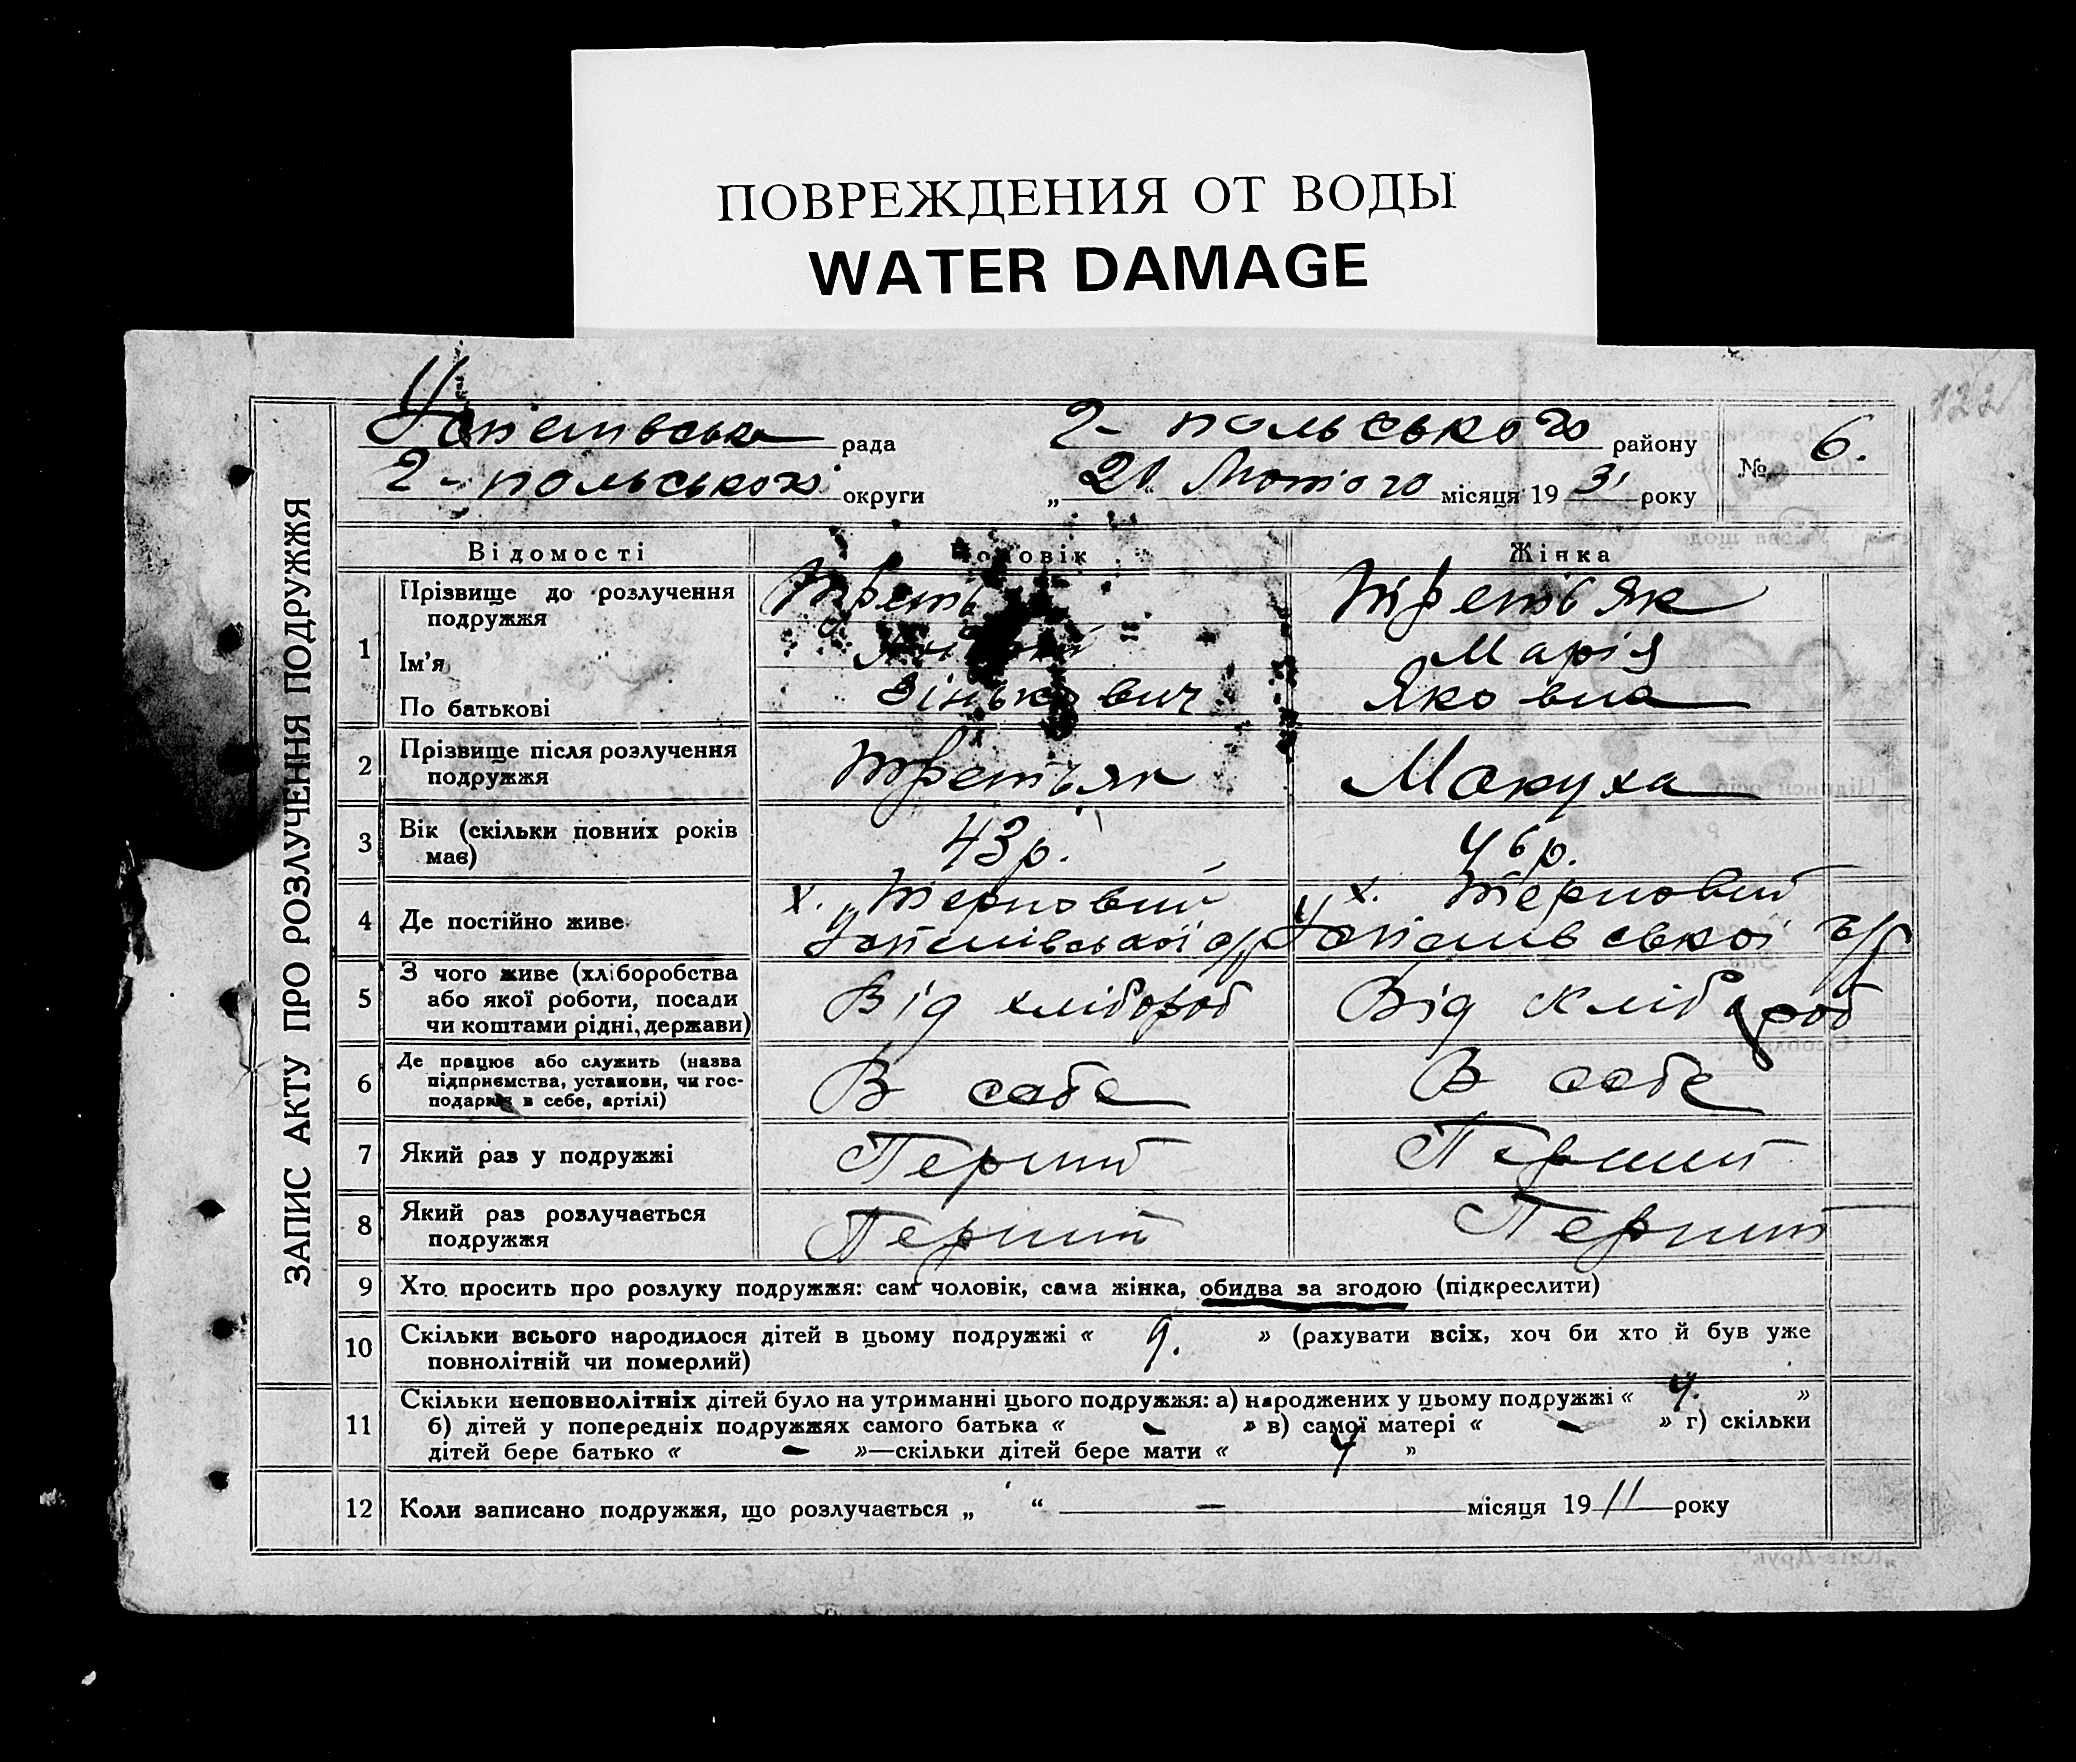 ПОВРЕЖДЕНИЯ ОТ ВОДЫ
WATER DAMAGE
122
ЗАПИС АКТУ ПРО РОЗЛУЧЕННЯ ПОДРУЖЖЯ
рада Г-польського району № 6.
Г-польської округи „21“ Лютого місяця 1931 року
Відомості Чоловік Жінка
1 Прізвище до розлучення подружжя Треть Третьяк
Ім'я Марія
По батькові Зінькович Яковна
2 Прізвище після розлучення подружжя Третьяк Макуха
3 Вік (скільки повних років має) 43 р. 46 р.
4 Де постійно живе х. Терновий х. Терновий
5 З чого живе (хліборобства або якої роботи, посади чи коштами рідні, держави) Від хлібороб Від хлібороб
6 Де працює або служить (назва підприємства, установи, чи господаркя в себе, артілі) В себе В себе
7 Який раз у подружжі Перший Перший
8 Який раз розлучається подружжя Перший Перший
9 Хто просить про розлуку подружжя: сам чоловік, сама жінка, обидва за згодою (підкреслити)
10 Скільки всього народилося дітей в цьому подружжі « 9. » (рахувати всіх, хоч би хто й був уже
повнолітній чи померлий)
11 Скільки неповнолітніх дітей було на утриманні цього подружжя: а) народжених у цьому подружжі « 4. »
б) дітей у попередніх подружжях самого батька « - » в) самої матері « - » г) скільки
дітей бере батько « - »—скільки дітей бере мати « 4 »
12 Коли записано подружжя, що розлучається „ “ — місяця 1911 року